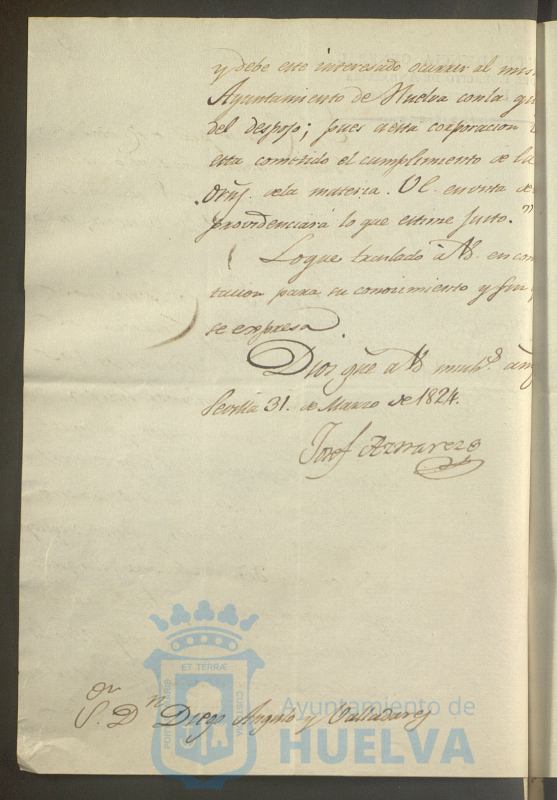 y debe este interesado ocurrir al mis
Ayuntamiento de Huelva con la qu
del despojo; pues a esta corporacion
esta cometido el cumplimiento de la
de la materia. en vista de
providenciará lo que estime justo."
Lo que traslado á VS. en con
tacion para su conocimiento y fin
se expresa.
Dios gue. a VS muchs. añ
Sevilla 31. de Marzo de 1824.
Josef Aznarez
Sor. Dn. Diego Angulo y Valladares
ET TERRÆ
PORTUS MARIS
CUSTODIA
Ayuntamiento de
HUELVA